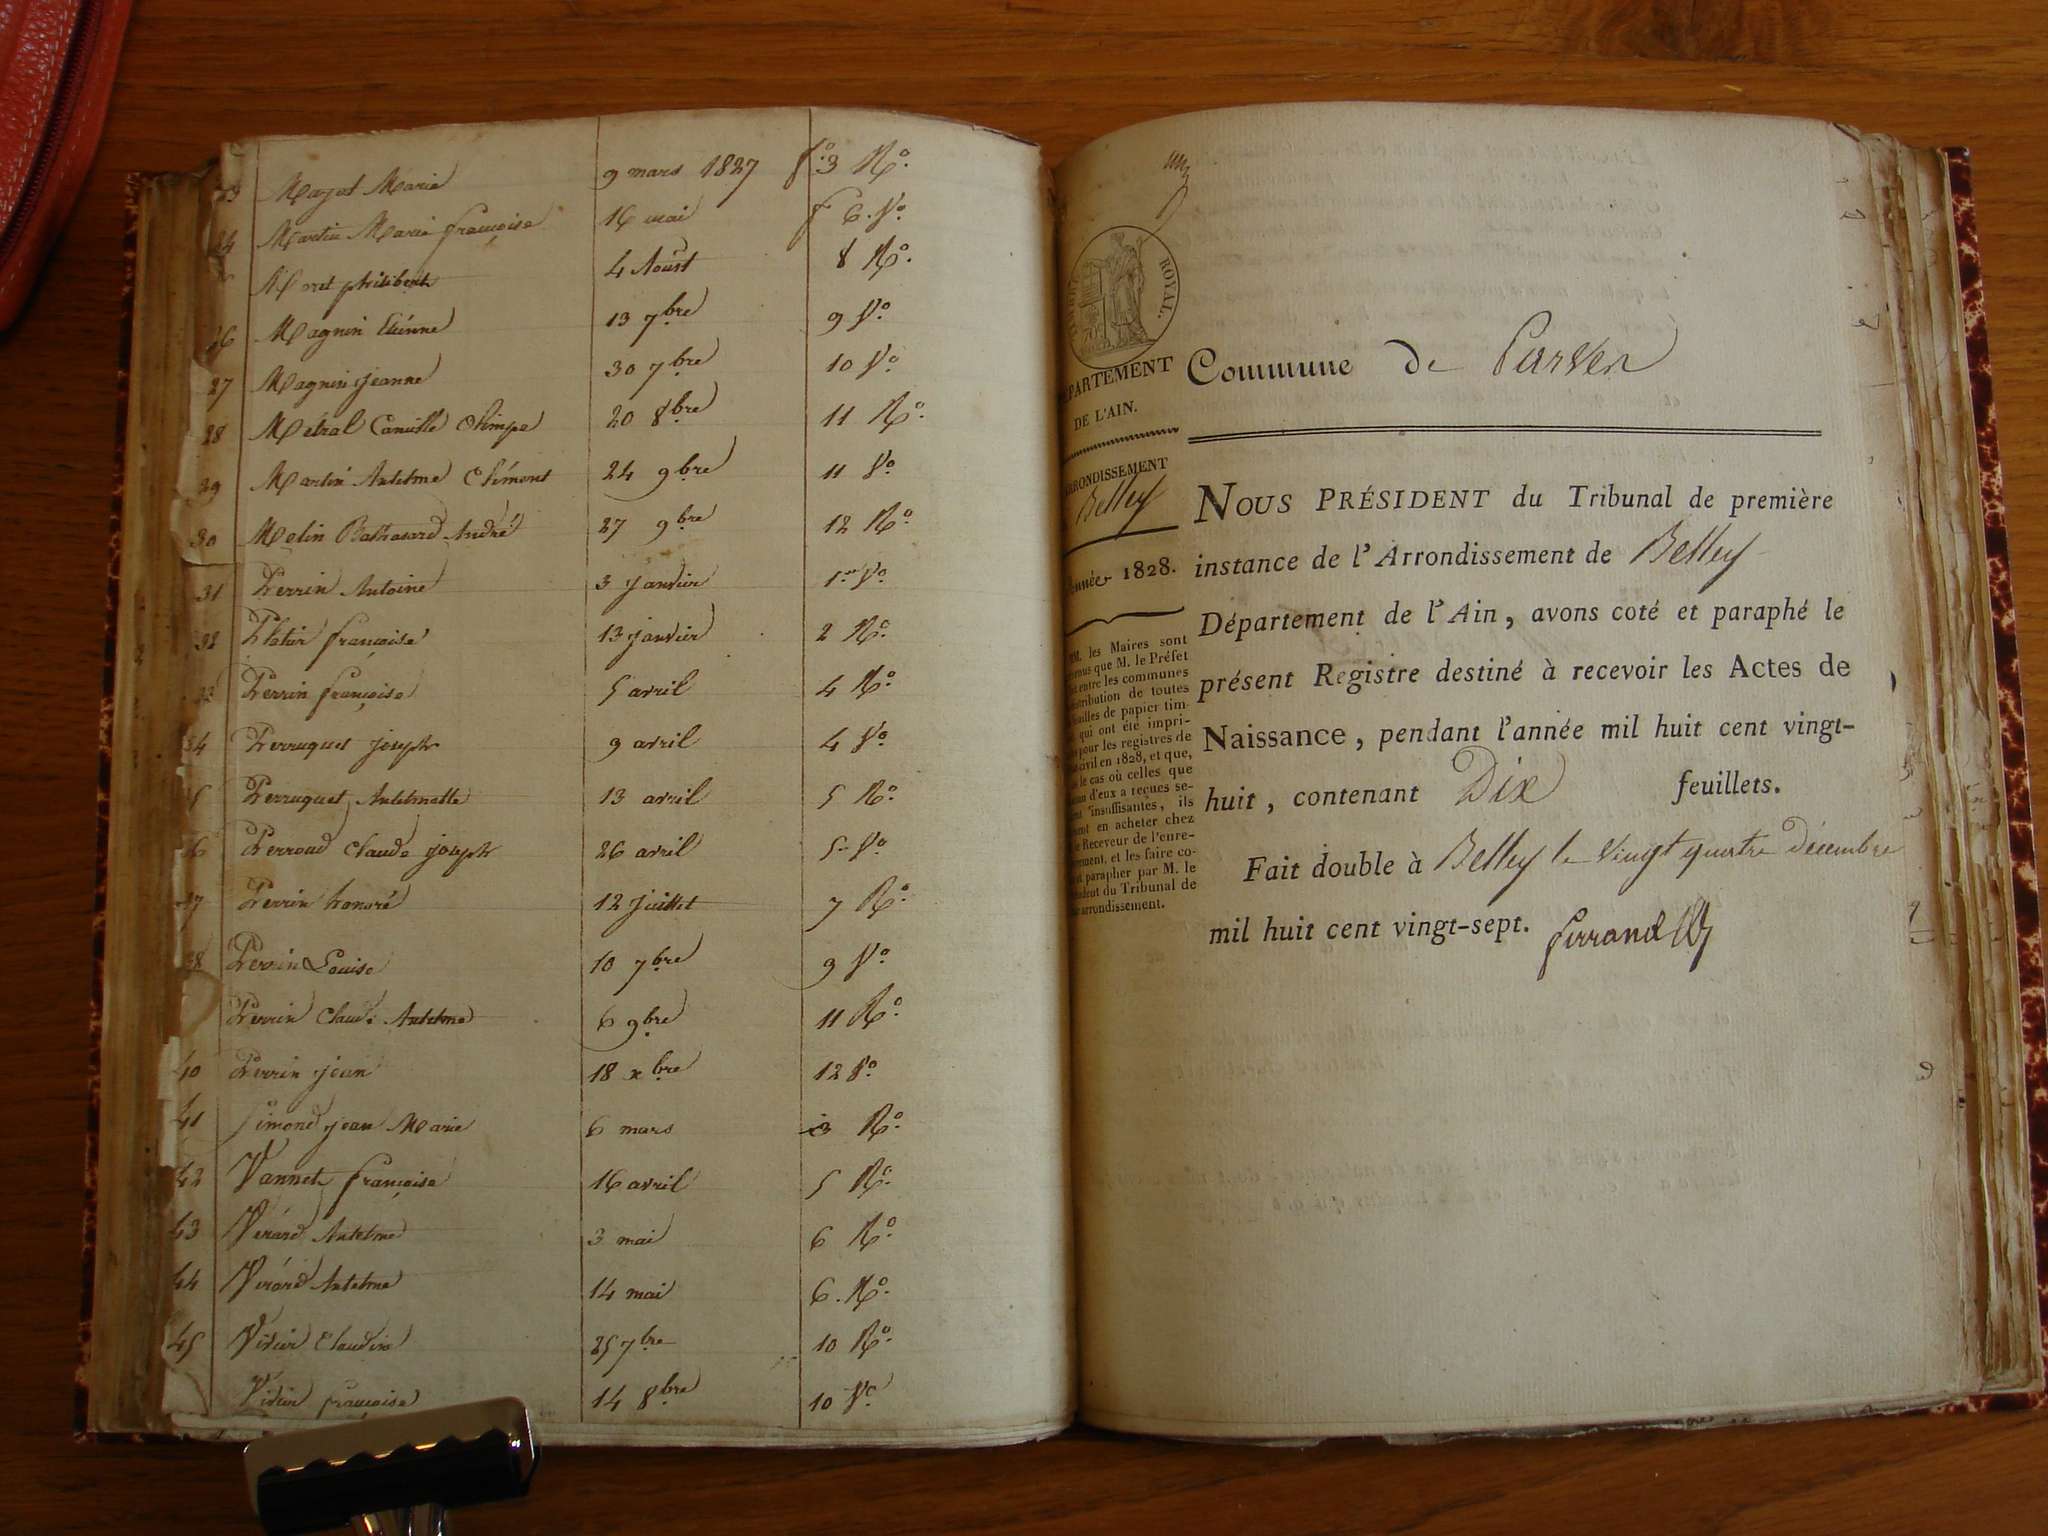 23 Mayot Marie 9 mars 1827 f.° 3 R.°
24 Martin Marie françoise 16 mai f 6. V.°
Moret philibert 4 Aoust 8 R.°
26 Magnin Etiénne 13 7bre 9 V.°
27 Magnin jeanne 30 7bre 10 V.°
28 Métral Camille Olimpe 20 8bre 11 R.°
29 Martin Antelme Clémont 24 9bre 11 V.°
30 Molin Balthasard André 27 9bre 12 R.°
31 Perrin Antoine 3 janvier 1.er V.°
32 Platin françoise 13 janvier 2 R.°
33 Perrin françoise 5 avril 4 R.°
34 Perruquet joseph 9 avril 4 V.°
5 Perruquet Antelmette 13 avril 5 R.°
36 Perroud Claude joseph 26 avril 5 V.°
37 Perrin honoré 12 juillet 7 R.°
38 Perrin Louise 10 7bre 9 V.°
Perrin Claude Antelme 6 9bre 11 R.°
40 Perrin jean 18 xbre 12 V.°
41 Simond jean Marie 6 mars 3 R.°
42 Vannet françoise 16 avril 5 R.°
43 Vérard Antelme 3 mai 6 R.°
44 Vérard Antelme 14 mai 6. R.°
45 Vivier Claudine 25 7bre 10 R.°
Vivier françoise 14 8bre 10 V.°
un
ROYAL.
PARTEMENT
DE L'AIN.
RRONDISSEMENT
Belley
Année 1828.
MM. les Maires sont
nus que M. le Préfet
entre les communes
stribution de toutes
euilles de papier tim-
qui ont été impri-
pour les registres de
civil en 1828, et que,
le cas où celles que
un d'eux a reçues se-
nt insuffisantes, ils
ront en acheter chez
Receveur de l'enre-
rement, et les faire co-
et parapher par M. le
sident du Tribunal de
arrondissement.
Commune de Parves
NOUS PRÉSIDENT du Tribunal de première
instance de l'Arrondissement de Belley
Département de l'Ain, avons coté et paraphé le
présent Registre destiné à recevoir les Actes de
Naissance, pendant l'année mil huit cent vingt-
huit, contenant Dix feuillets.
Fait double à Belley le vingt quatre décembre
mil huit cent vingt-sept.